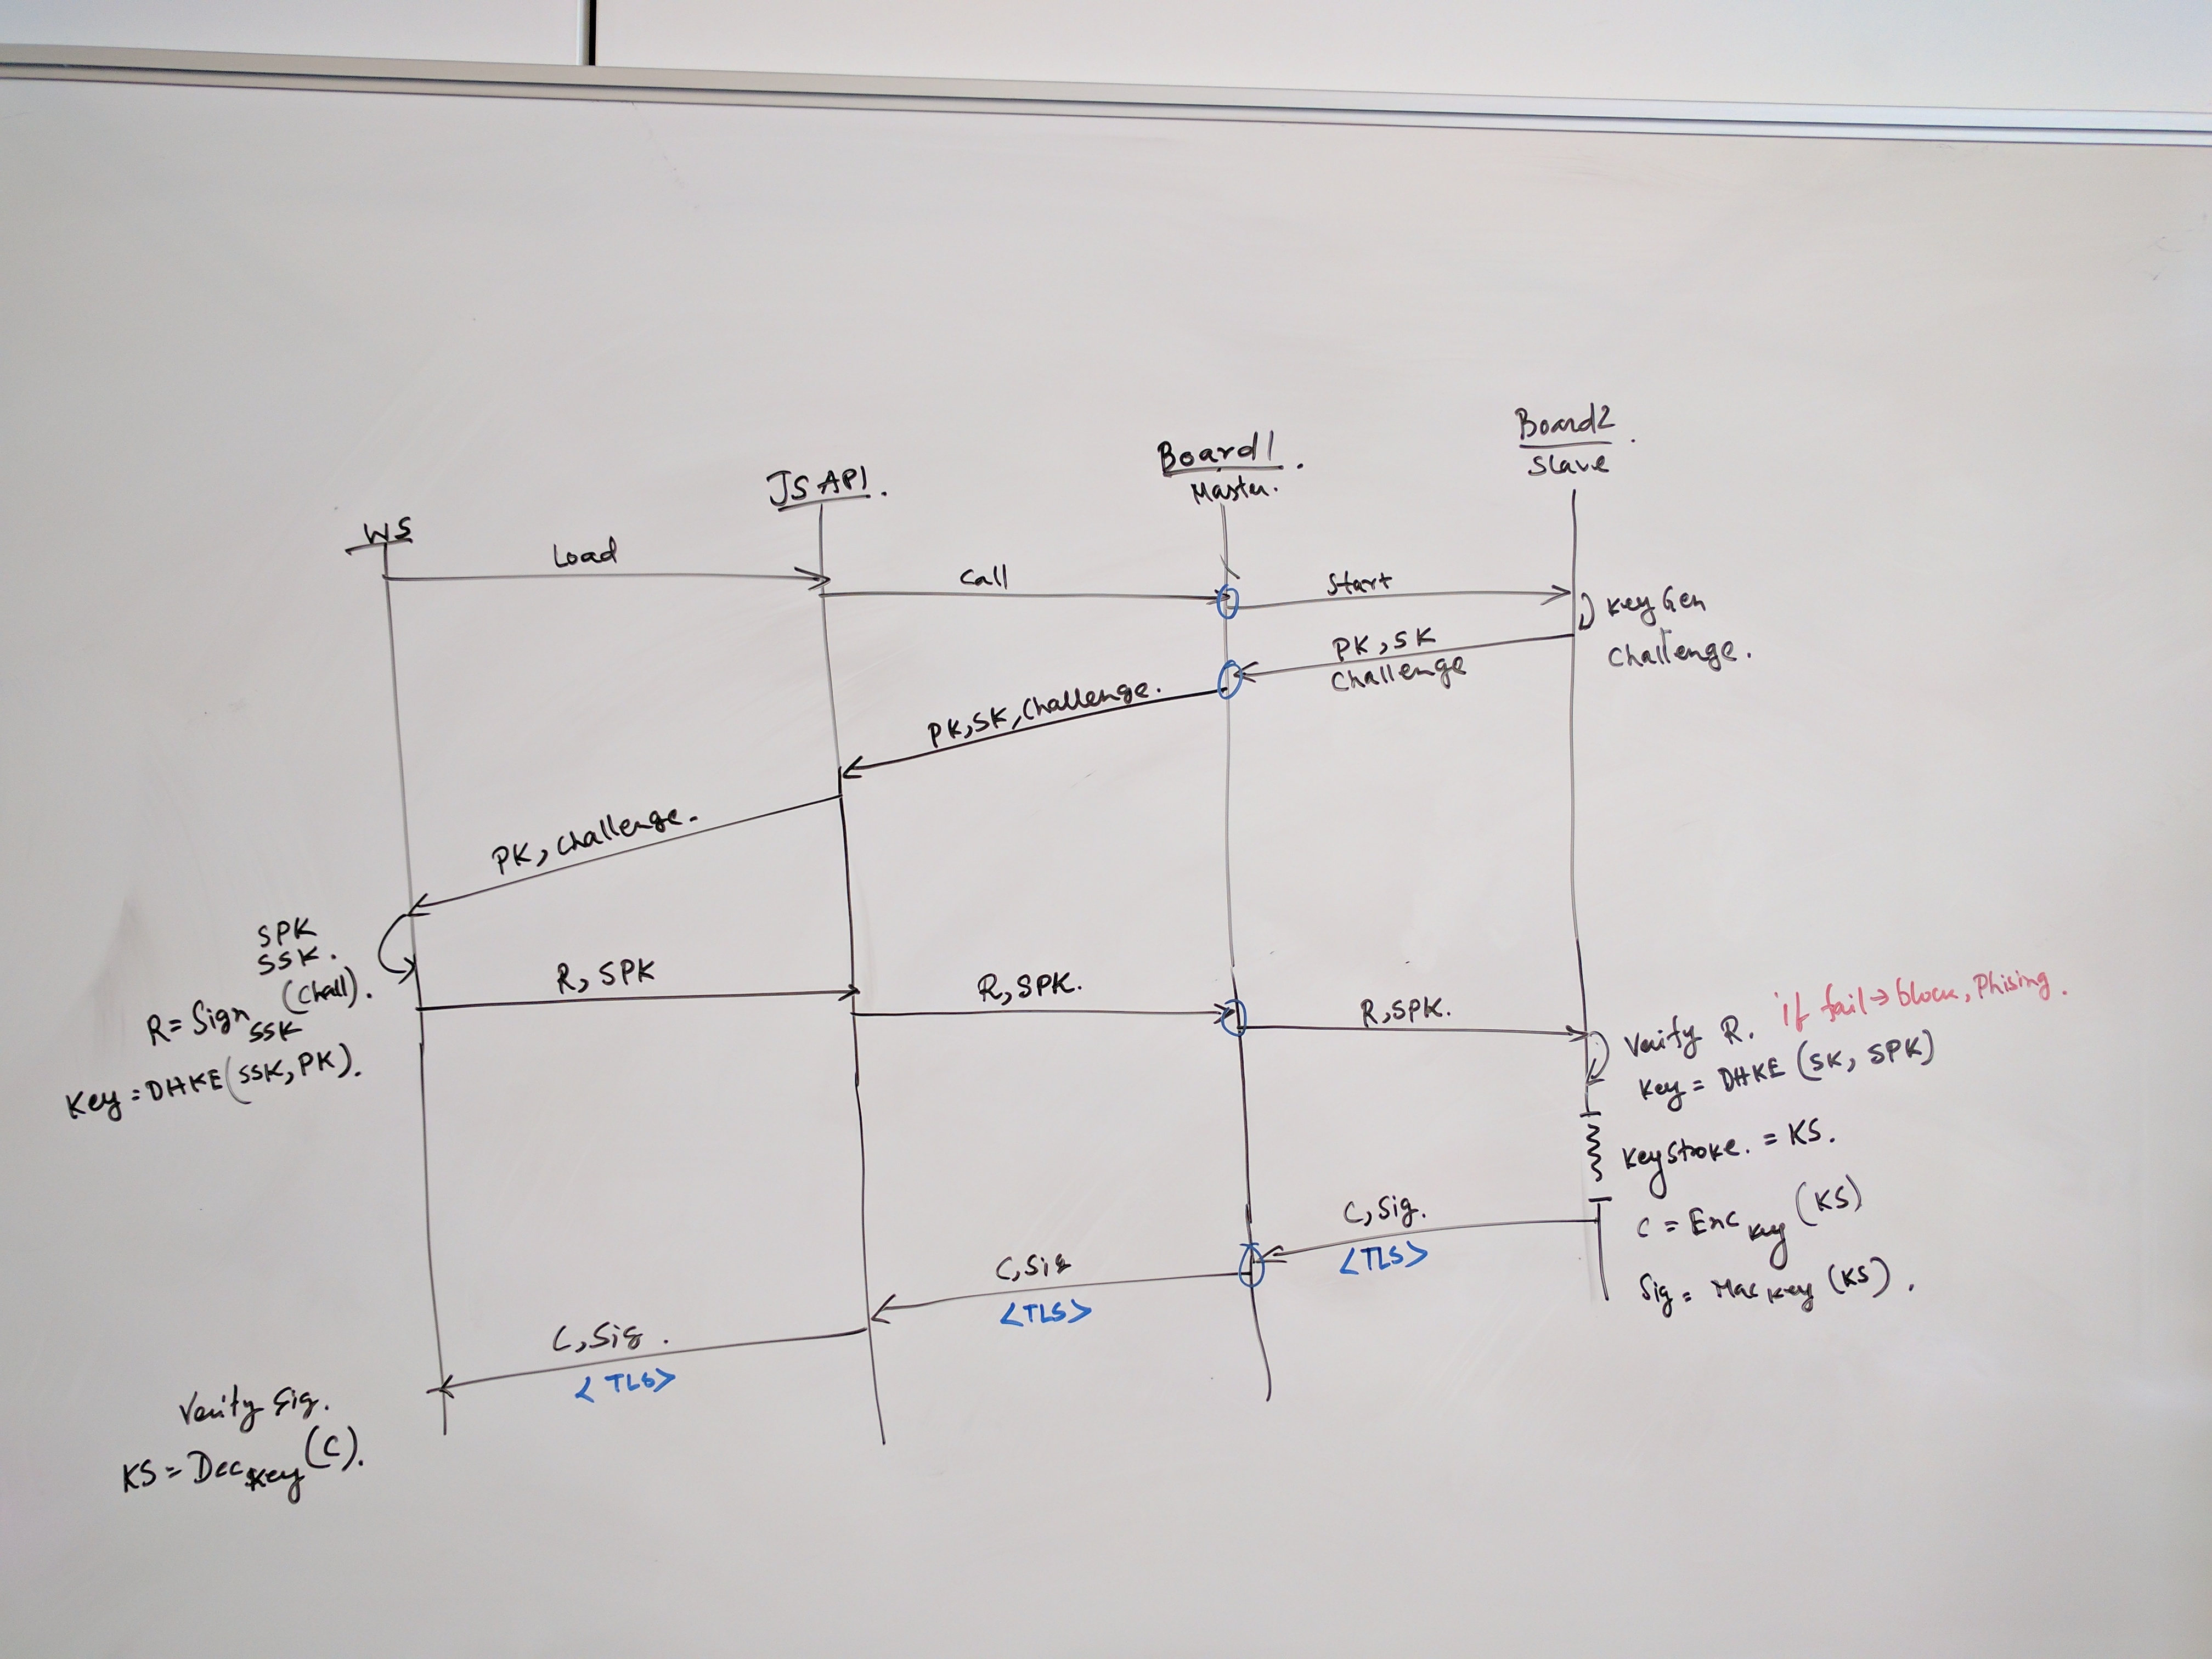 Board2.
Slave
Board1.
Master.
JS API.
WS
Load
Call
Start
KeyGen
Challenge.
PK, SK
Challenge
PK, SK, Challenge.
PK, Challenge.
SPK
SSK.
R = Sign SSK (Chall).
Key = DHKE (SSK, PK).
R, SPK
R, SPK.
R, SPK.
Verify R. if fail → block, Phising.
Key = DHKE (SK, SPK)
KeyStroke. = KS.
C = Enc Key (KS)
Sig = Mac Key (KS).
C, Sig.
<TLS>
C, Sig
<TLS>
C, Sig.
<TLS>
Verify Sig.
KS = Dec Key (C).